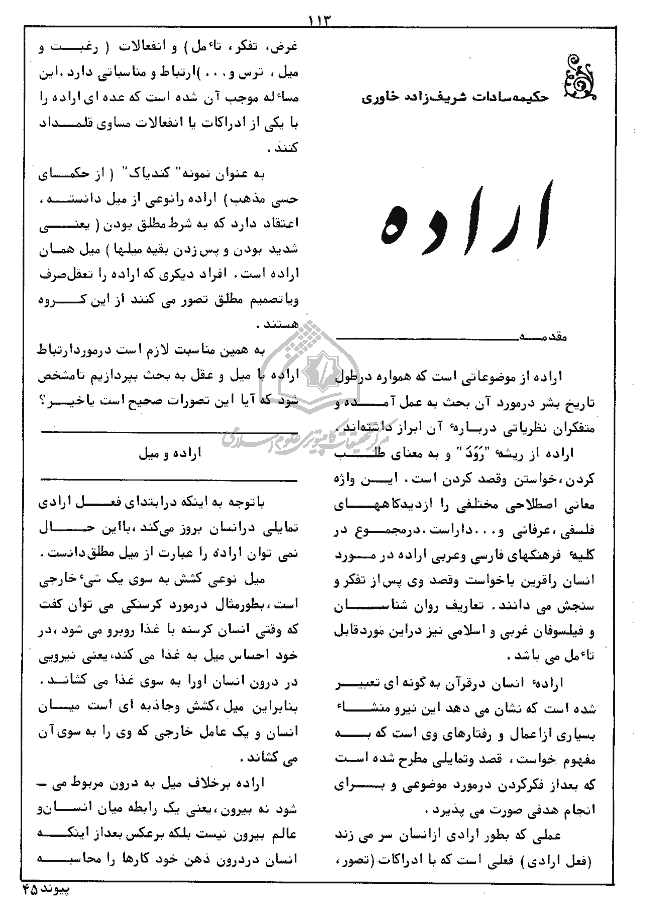 ۱۱۳
حکیمه سادات شریف‌زاده خاوری
اراده
مقدمه
اراده از موضوعاتی است که همواره درطول
تاریخ بشر درمورد آن بحث به عمل آمده و
متفکران نظریاتی درباره‌ٔ آن ابراز داشته‌اند.
اراده از ریشه‌ٔ "رَوَدَ" و به معنای طلب
کردن، خواستن وقصد کردن است. این واژه
معانی اصطلاحی مختلفی را ازدیدگاههای
فلسفی، عرفانی و... داراست. درمجموع در
کلیه‌ٔ فرهنگهای فارسی وعربی اراده در مورد
انسان راقرین باخواست وقصد وی پس از تفکر و
سنجش می دانند. تعاریف روان شناسان
و فیلسوفان غربی و اسلامی نیز دراین موردقابل
تاٴمل می باشد.
اراده‌ٔ انسان درقرآن به گونه ای تعبیر
شده است که نشان می دهد این نیرو منشاٴ
بسیاری ازاعمال و رفتارهای وی است که به
مفهوم خواست، قصد وتمایلی مطرح شده است
که بعداز فکرکردن درمورد موضوعی و برای
انجام هدفی صورت می پذیرد.
عملی که بطور ارادی ازانسان سر می زند
(فعل ارادی) فعلی است که با ادراکات (تصور،
غرض، تفکر، تاٴمل) و انفعالات (رغبت و
میل، ترس و...) ارتباط و مناسباتی دارد. این
مساٴله موجب آن شده است که عده ای اراده را
با یکی از ادراکات یا انفعالات مساوی قلمداد
کنند.
به عنوان نمونه "کندیاک" (از حکمای
حسی مذهب) اراده رانوعی از میل دانسته،
اعتقاد دارد که به شرط مطلق بودن (یعنی
شدید بودن و پس زدن بقیه میلها) میل همان
اراده است. افراد دیگری که اراده را تعقل صرف
ویاتصمیم مطلق تصور می کنند از این گروه
هستند.
به همین مناسبت لازم است درموردارتباط
اراده با میل و عقل به بحث بپردازیم تامشخص
شود که آیا این تصورات صحیح است یاخیر؟
اراده و میل
باتوجه به اینکه درابتدای فعل ارادی
تمایلی درانسان بروز می‌کند، بااین حال
نمی توان اراده را عبارت از میل مطلق‌دانست.
میل نوعی کشش به سوی یک شیٴ خارجی
است، بطورمثال درمورد گرسنگی می توان گفت
که وقتی انسان گرسنه با غذا روبرو می شود، در
خود احساس میل به غذا می کند، یعنی نیرویی
در درون انسان اورا به سوی غذا می کشاند.
بنابراین میل، کشش وجاذبه ای است میان
انسان و یک عامل خارجی که وی را به سوی آن
می کشاند.
اراده برخلاف میل به درون مربوط می -
شود نه بیرون، یعنی یک رابطه میان انسان‌و
عالم بیرون نیست بلکه برعکس بعداز اینکه
انسان دردرون ذهن خود کارها را محاسبه
مرکز تحقیقات کامپیوتری علوم اسلامی
پیوند ۴۵